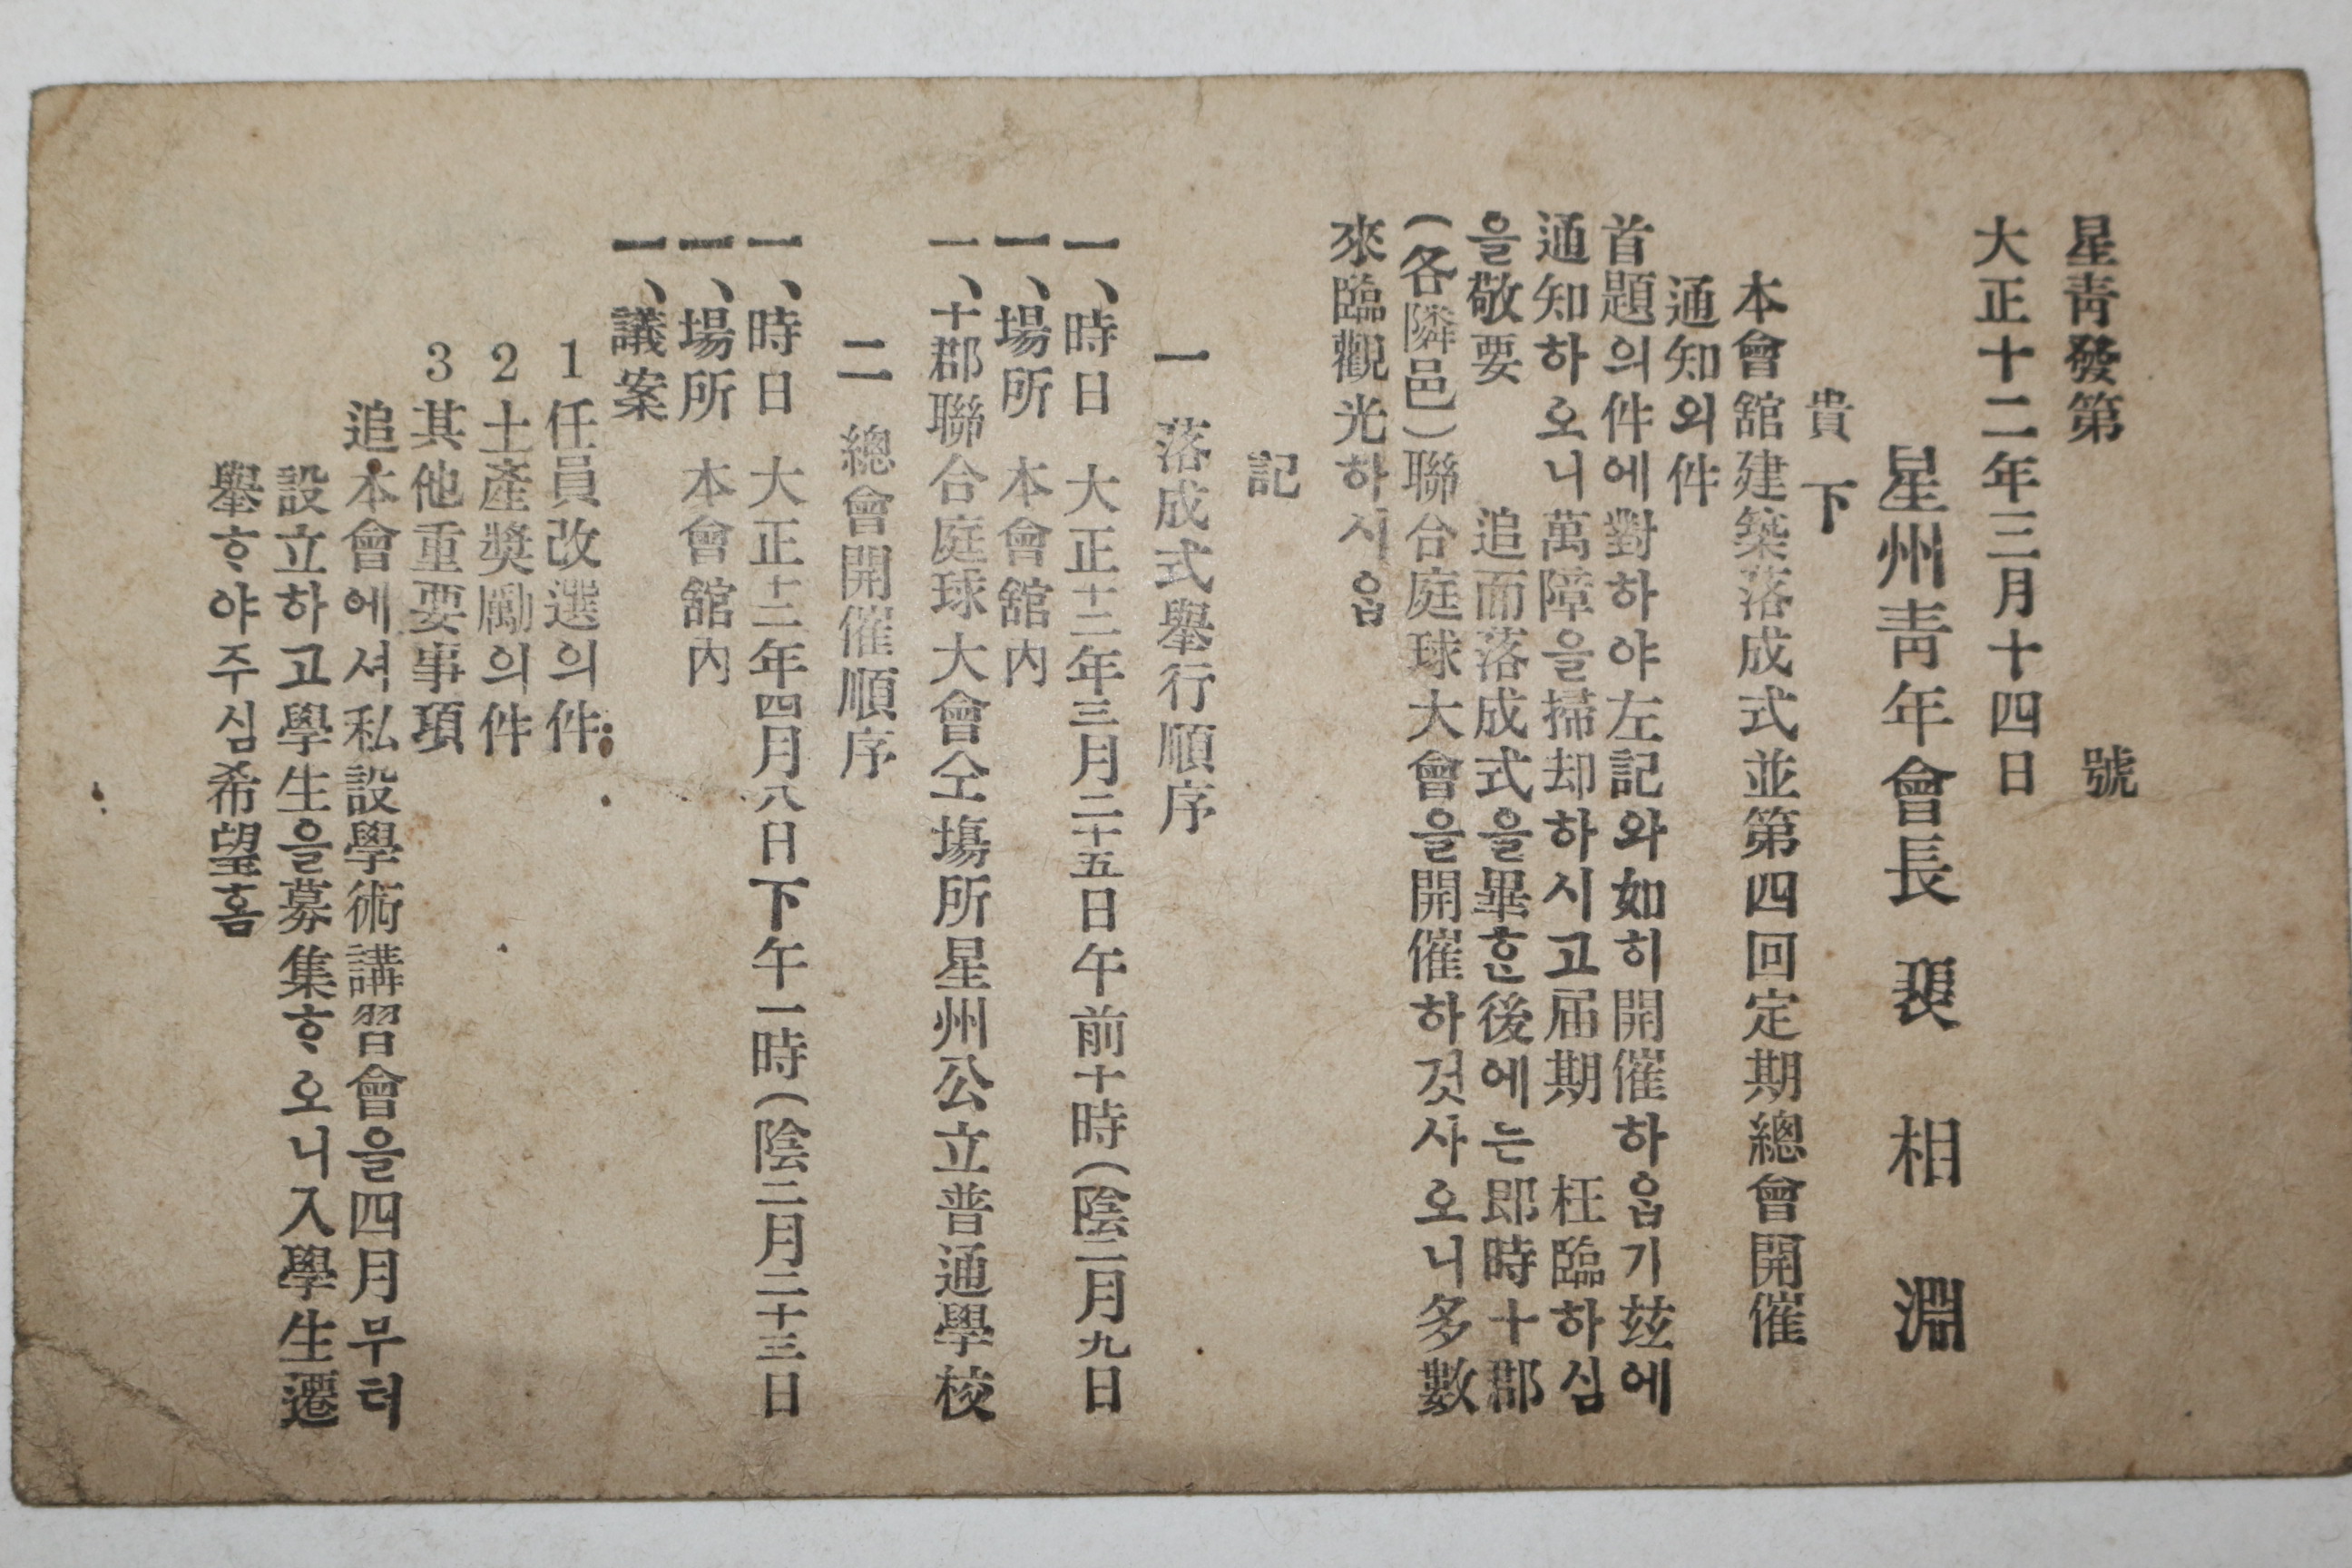 星靑發第 號
大正十二年三月十四日
星州靑年會長 裵相淵
貴下
本會舘建築落成式並第四回定期總會開催
通知외件
首題의件에對하야左記와如히開催하읍기玆에
通知하오니萬障을掃却하시고届期 枉臨하심
을敬要 追而落成式을畢ᄒᆞᆫ後에는郎時十郡
(各隣邑)聯合庭球大會을開催하것사오니多數
來臨觀光하시읍
記
一 落成式擧行順序
一、時日 大正十二年三月二十五日午前十時(陰二月九日
一、場所 本會舘內
一、十郡聯合庭球大會仝塲所星州公立普通學校
二 總會開催順序
一、時日 大正十二年四月八日下午一時(陰二月二十三日
一、場所 本會舘內
一、議案
1任員改選의件
2土產奬勵의件
3其他重要事項
追本會에셔私設學術講習會을四月부터
設立하고學生을募集ᄒᆞ오니入學生遷
擧ᄒᆞ야주심希望홈